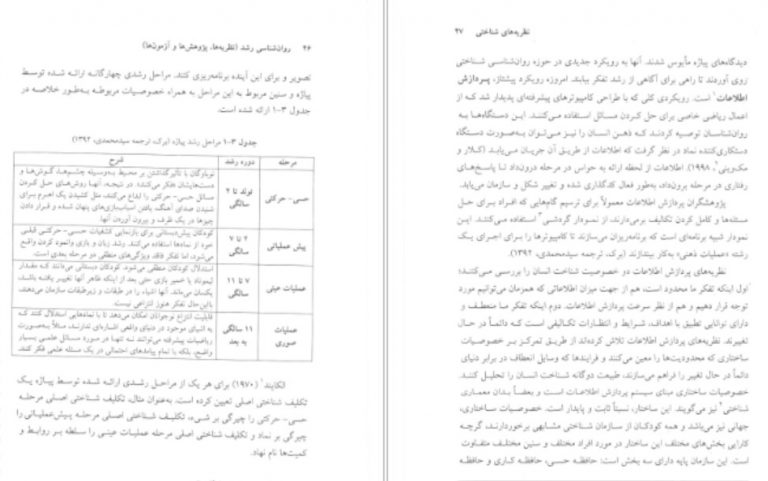 ۴۶ روان‌شناسی رشد (نظریه‌ها، پژوهش‌ها و آزمون‌ها)
تصویر و برای این آینده برنامه‌ریزی کنند. مراحل رشدی چهارگانه ارائه شده توسط
پیاژه و سنین مربوط به این مراحل به همراه خصوصیات مربوطه به‌طور خلاصه در
جدول ۳-۱ ارائه شده است.
جدول ۳-۱ مراحل رشد پیاژه (برک، ترجمه سیدمحمدی، ۱۳۹۲)
مرحله دوره رشد شرح
حسی- حرکتی
تولد تا ۲
سالگی
نوباوگان با تأثیرگذاشتن بر محیط به‌وسیله چشم‌ها، گوش‌ها و
دست‌هایشان «فکر می‌کنند». در نتیجه، آنها روش‌های حل کردن
مسائل حسی- حرکتی را ابداع می‌کنند، مثل کشیدن یک اهرم برای
شنیدن صدای آهنگ، یافتن اسباب‌بازی‌های پنهان شده و قرار دادن
چیزها در یک ظرف و بیرون آوردن آنها.
پیش عملیاتی
۲ تا ۷
سالگی
کودکان پیش‌دبستانی برای بازنمایی کشفیات حسی- حرکتی قبلی
خود از نمادها استفاده می‌کنند. رشد زبان و بازی وانمود کردن واقع
می‌شود، اما تفکر فاقد ویژگی‌های منطقی دو مرحله بعدی است.
عملیات عینی
۷ تا ۱۱
سالگی
استدلال کودکان منطقی می‌شود. کودکان دبستانی می‌دانند که مقدار
لیموناد یا خمیر بازی حتی بعد از اینکه ظاهر آنها تغییر یافته باشد،
یکسان می‌ماند. آنها اشیاء را در طبقات و زیرطبقات سازمان می‌دهند،
بااین‌حال تفکر هنوز انتزاعی نیست.
عملیات
صوری
۱۱ سالگی
به بعد
قابلیت انتزاع نوجوانان امکان می‌دهد تا با نمادهایی استدلال کنند که
به اشیای موجود در دنیای واقعی اشاره‌ای ندارند، مثلاً به‌صورت
ریاضیات پیشرفته می‌توانند نه تنها در مورد مسائل علمی بسیار
واضح، بلکه با تمام پیامدهای احتمالی در یک مسئله علمی فکر کنند.
الکایند (۱۹۷۰) برای هر یک از مراحل رشدی ارائه شده توسط پیاژه یک
تکلیف شناختی اصلی تعیین کرده است. به‌عنوان مثال، تکلیف شناختی اصلی مرحله
حسی- حرکتی را چیرگی بر شیء، تکلیف شناختی اصلی مرحله پیش‌عملیاتی را
چیرگی بر نماد و تکلیف شناختی اصلی مرحله عملیات عینی را سلطه بر روابط و
کمیت‌ها نام نهاد.
نظریه‌های شناختی ۴۷
دیدگاه‌های پیاژه مأیوس شدند. آنها به رویکرد جدیدی در حوزه روان‌شناسی شناختی
روی آوردند تا راهی برای آگاهی از رشد تفکر بیابند. امروزه رویکرد پیشتاز، پردازش
اطلاعات است. رویکردی کلی که با طراحی کامپیوترهای پیشرفته‌ای پدیدار شد که از
اعمال ریاضی خاصی برای حل کردن مسائل استفاده می‌کنند. این دستگاه‌ها به
روان‌شناسان توصیه کردند که ذهن انسان را نیز می‌توان به‌صورت دستگاه
دستکاری‌کننده نماد در نظر گرفت که اطلاعات از طریق آن جریان می‌یابد (کلار و
مک‌وینی، ۱۹۹۸). اطلاعات از لحظه ارائه به حواس در مرحله درون‌داد تا پاسخ‌های
رفتاری در مرحله برون‌داد، به‌طور فعال کدگذاری شده و تغییر شکل و سازمان می‌یابد.
پژوهشگران پردازش اطلاعات معمولاً برای ترسیم گام‌هایی که افراد برای حل
مسئله‌ها و کامل کردن تکالیف برمی‌دارند، از نمودار گردشی استفاده می‌کنند. این
نمودار شبیه برنامه‌ای است که برنامه‌ریزان می‌سازند تا کامپیوترها را برای اجرای یک
رشته «عملیات ذهنی» به‌کار بیندازند (برک، ترجمه سیدمحمدی، ۱۳۹۲).
نظریه‌های پردازش اطلاعات دو خصوصیت شناخت انسان را بررسی می‌کنند؛
اول اینکه تفکر ما محدود است، هم از جهت میزان اطلاعاتی که همزمان می‌توانیم مورد
توجه قرار دهیم و هم از نظر سرعت پردازش اطلاعات. دوم اینکه تفکر ما منعطف و
دارای توانایی تطبیق با اهداف، شرایط و انتظارات تکالیفی است که دائماً در حال
تغییرند. نظریه‌های پردازش اطلاعات تلاش کرده‌اند از طریق تمرکز بر خصوصیات
ساختاری که محدودیت‌ها را معین می‌کنند و فرایندها که وسایل انعطاف در برابر دنیای
دائماً در حال تغییر را فراهم می‌سازند، طبیعت دوگانه شناخت انسان را تحلیل کنند.
خصوصیات ساختاری مبنای سیستم پردازش اطلاعات است و بعضاً بدان معماری
شناختی نیز می‌گویند. این ساختار، نسبتاً ثابت و پایدار است. خصوصیات ساختاری،
جهانی نیز می‌باشد و همه کودکان از سازمان شناختی مشابهی برخوردارند، گرچه
کارایی بخش‌های مختلف این ساختار در مورد افراد مختلف و سنین مختلف متفاوت
است. این سازمان پایه دارای سه بخش است: حافظه حسی، حافظه کاری و حافظه